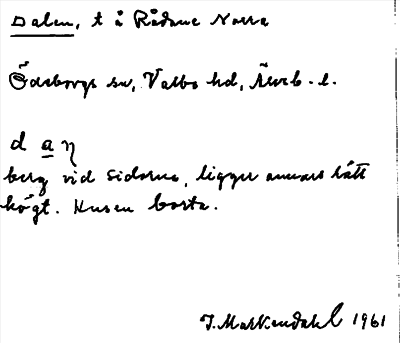 Dalen, t å Rådane Norra
Ödsborgs sn, Valbo hd, Älvsb. l.
d a ŋ
berg vid sidorna, ligger annars lätt
högt. Husen borta.
J. 1961